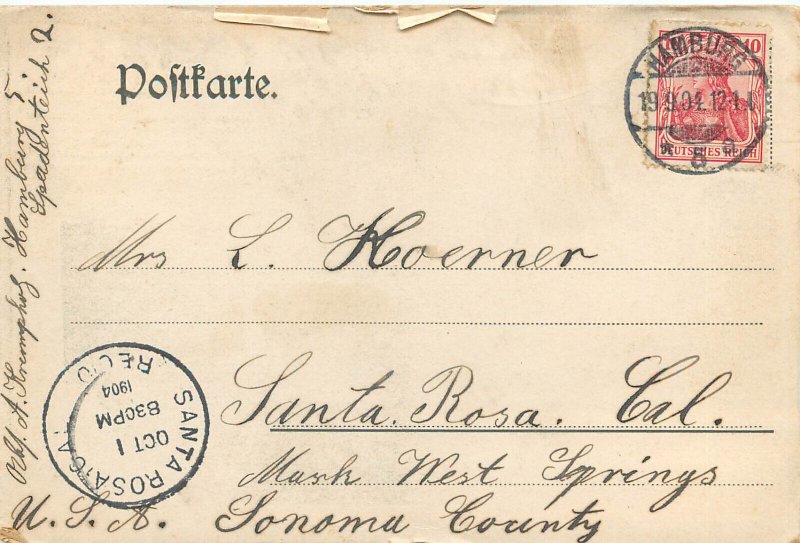 Postkarte.
10
HAMBURG
19.9.04.12-1
5 a
DEUTSCHES REICH
Mrs L. Koerner
Santa Rosa. Cal.
Mark West Springs
U. S. A. Sonoma County
SANTA ROSA, CAL.
OCT 1
830PM
1904
REC'D
A. Hamburg 5.
2.